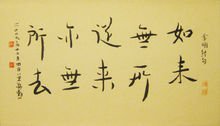 金剛經句
如来
無所
從来
亦無
所去